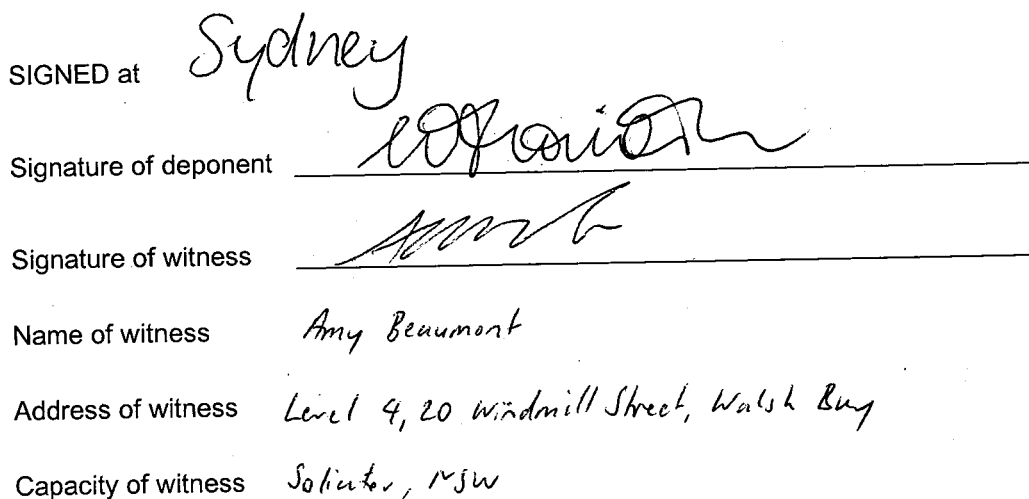 SIGNED at Sydney
Signature of deponent
Signature of witness
Name of witness Amy Beaumont
Address of witness Level 4, 20 Windmill Street, Walsh Bay
Capacity of witness Solicitor, NSW